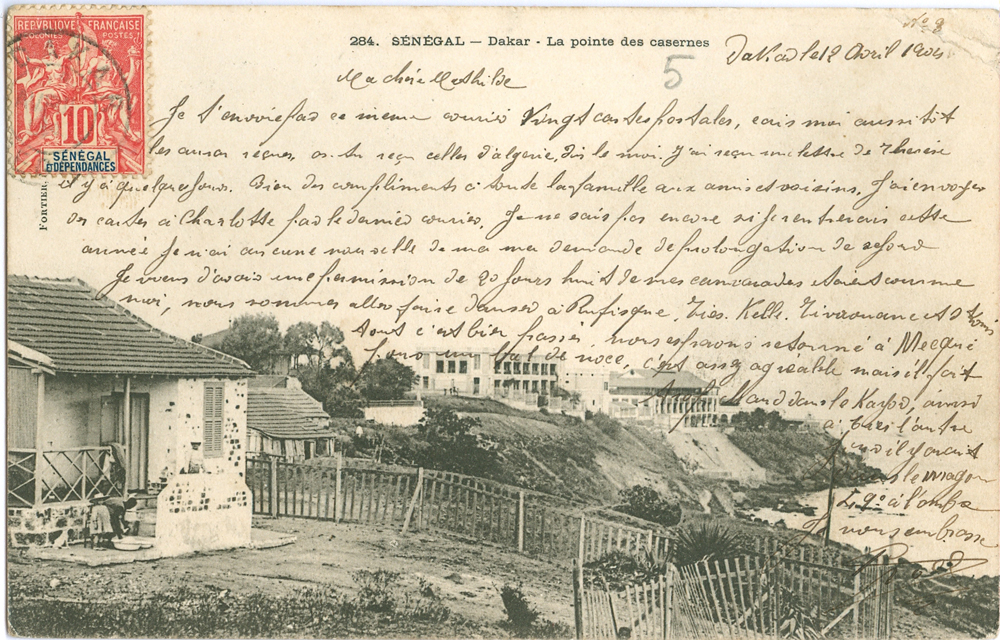 Nº 8
REPVBLIQUE FRANÇAISE
COLONIES POSTES
10
SÉNÉGAL
& DÉPENDANCES
284. SÉNÉGAL — Dakar - La pointe des casernes
5
Dakar le 12 Avril 1904
FORTIER
Ma chère Mathilde
Je t'envoie par ce meme courrier Vingt cartes postales, ecris moi aussitôt
les auras reçues, as-tu reçu celles d'algerie, dis le moi. J'ai reçu une lettre de Therese
il y a quelques jours. Bien des compliments à toute la famille aux amis et voisins, J'ai envoyer
des cartes à Charlotte par le dernier courrier, Je ne sais pas encore si je rentrerais cette
année je n'ai aucune nouvelle de ma demande de prolongation de sejour
Je viens d'avoir une permission de 20 jours huit de mes camarades etaient comme
moi, nous sommes aller faire danser à Rufisque, Ties, Kelle, Tivaouane et
tout c'est bien passé, nous esperons retourné à Meckhé
pour un bal de noce, c'est assez agréable mais il fait
chaud dans le Kayor, aussi
l'autre
il y avait
le wagon
à l'ombre
Je vous embrasse